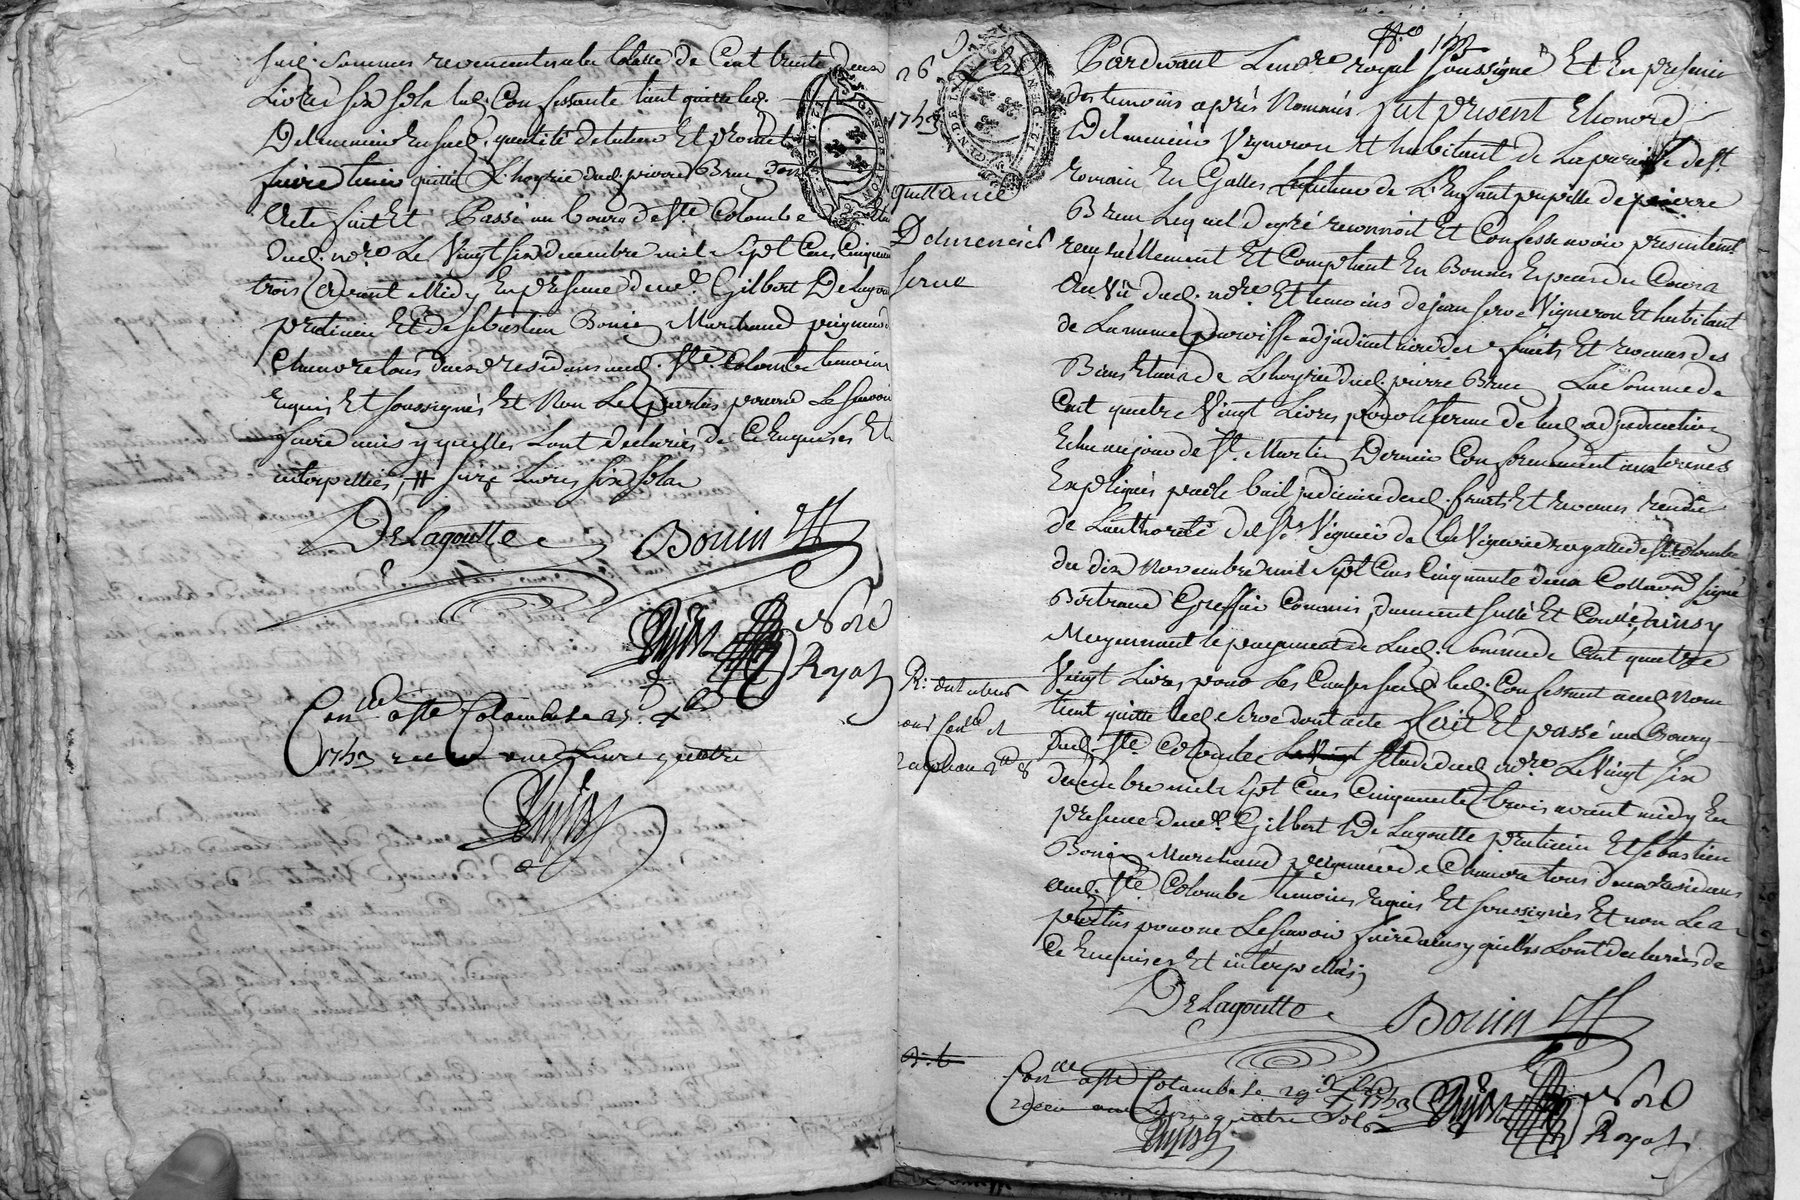 sud. sommes revenant à celle de Cent trente deux
Livres six sols led. Confessante tient quitte led.
Delmenier en sad. qualité de tuteur Et promet
faire tenir quitte L'hoyrie dud. pierre Brun, Dont
Acte fait Et Passé au bourg de Ste Colombe
dud. nore Le Vingt six decembre mil Sept Cens Cinquante
trois avant Midy En presence de me Gilbert Delagoutte
praticien Et de Sebastien Bouin Marchand peigneur de
Chanvre tous deux residans aud. Ste Colombe temoins
Requis Et soussignés Et Non Les parties pour ne Le sçavoir
faire ainsi qu'elles L'ont declaré de Ce Enquises Et
interpellées, # seize Livres six sols
Delagoutte Bouin
Nore
Royal
Conlé à Ste Colombe Le
1753 receu
26
1753
quittance
Delmenier
Serve
Pardevant Le nore royal soussigné Et En presence
des temoins après Nommés fut present Elionord
Delmenier Vigneron Et habitant de La paroisse de St
romain En Galles tuteur de L'Enfant pupille de pierre
Brun Lequel de gré reconnoit Et Confesse avoir presentement
reellement Et Comptant En Bonnes Especes de Cours
Au Vû dud. nore Et temoins de jean Serve Vigneron Et habitant
de La meme paroisse adjudicataire des fruits Et revenus des
Biens Etans de L'hoyrie dud. pierre Brun, La Somme de
Cent quatre Vingt Livres pour le ferme de lad. adjudication
Echu au jour de St Martin Dernier Conformement aux termes
Expliqués par le bail judiciaire desd. fruits Et revenus rendu
de L'authorité de Sr Viguier de La Viguerie royalle de Ste Colombe
du dix Novembre mil Sept Cens Cinquante deux Collaonné signé
Bertrand Greffier Commis, dument scellé Et Conllé, ainsy
Moyennant le payement de lad. Somme de Cent quatre
Vingt Livres pour Les Causes susd. led. Confessant aud. Nom
tient quitte led. Serve dont acte fait Et passé au Bourg
dud. Ste Colombe Le Vingt Etude dud. nore Le Vingt six
decembre mil Sept Cens Cinquante trois avant midy En
presence de me Gilbert Delagoutte praticien Et Sebastien
Bouin Marchand peigneur de Chanvre tous deux residans
aud. Ste Colombe temoins Requis Et soussignés Et non Les
parties pour ne Le sçavoir faire ainsy qu'elles L'ont declaré de
Ce Enquises Et interpellées
Delagoutte Bouin
Conlé à Ste Colombe Le 29 Xbre 1753
receu quatre sols
Nore
Royal